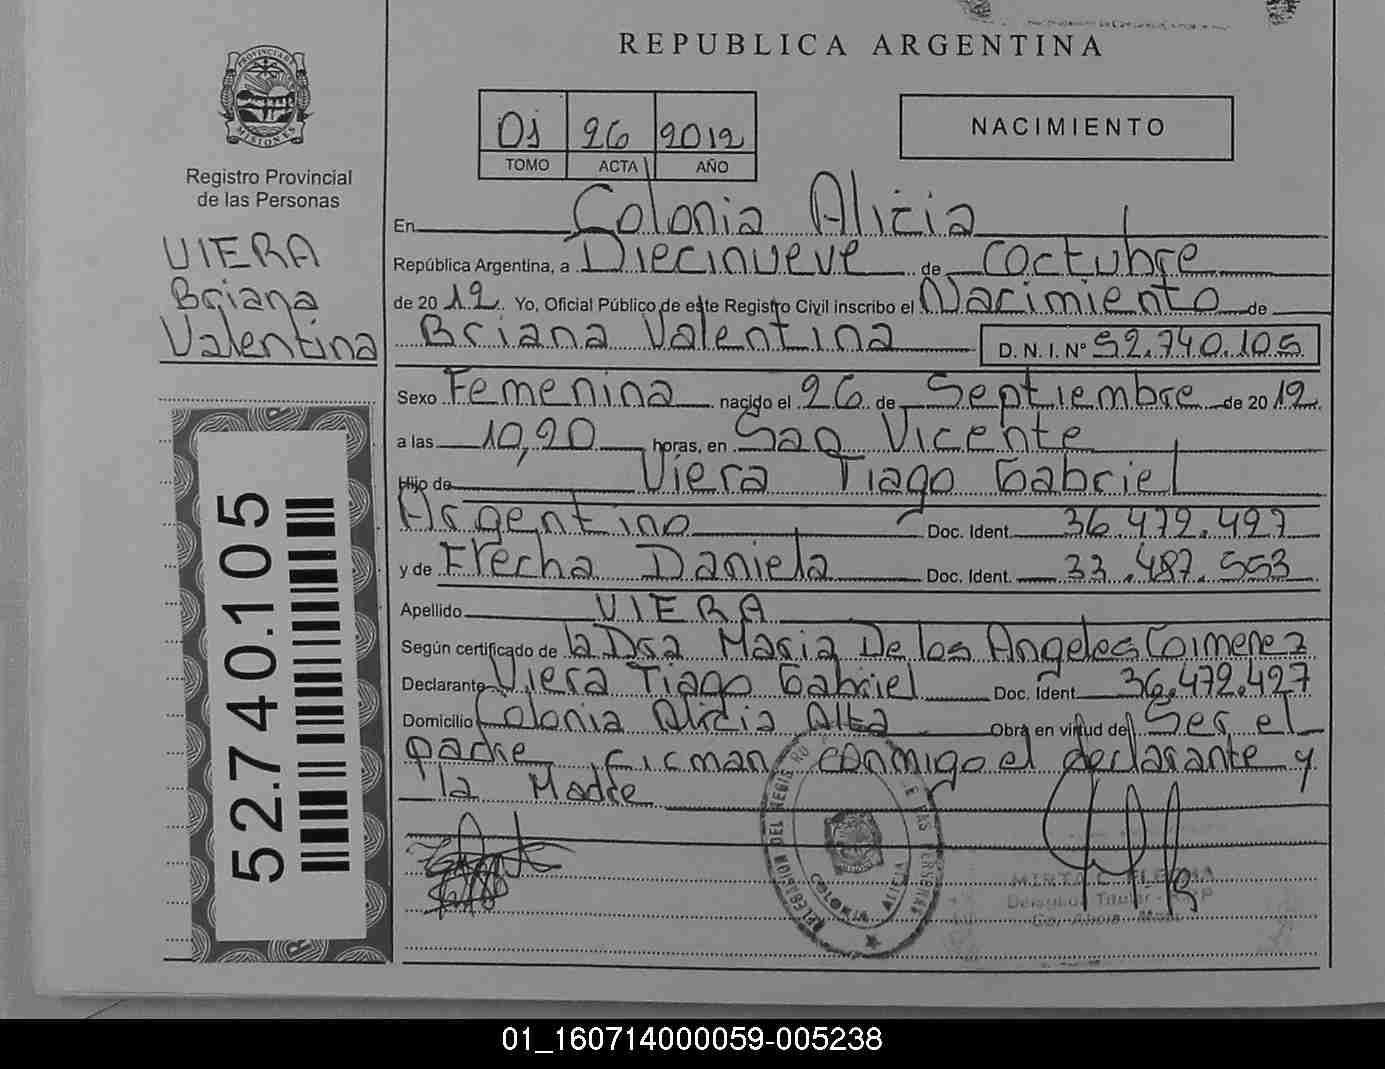 REPUBLICA ARGENTINA
PROVINCIA DE
MISIONES
Registro Provincial
de las Personas
VIERA
Briana
Valentina
52.740.105
01 26 2012
TOMO ACTA AÑO
NACIMIENTO
En Colonia Alicia
República Argentina, a Diecinueve de Octubre
de 2012. Yo, Oficial Público de este Registro Civil inscribo el Nacimiento de
Briana Valentina D. N. I. Nº 52.740.105
Sexo Femenina nacido el 26 de Septiembre de 2012
a las 10,20 horas, en San Vicente
Hijo de Viera Tiago Gabriel
Argentino Doc. Ident. 36.472.427
y de Flecha Daniela Doc. Ident. 33.487.553
Apellido VIERA
Según certificado de la Dra Maria De los Angeles Gimenez
Declarante Viera Tiago Gabriel Doc. Ident 36.472.427
Domicilio Colonia Alicia Alta Obra en virtud de Ser el
padre firman conmigo el declarante y
la Madre
DELEGACION DEL REGISTRO DE LAS PERSONAS
COLONIA ALICIA
MIRTA C.
Titular
01_160714000059-005238